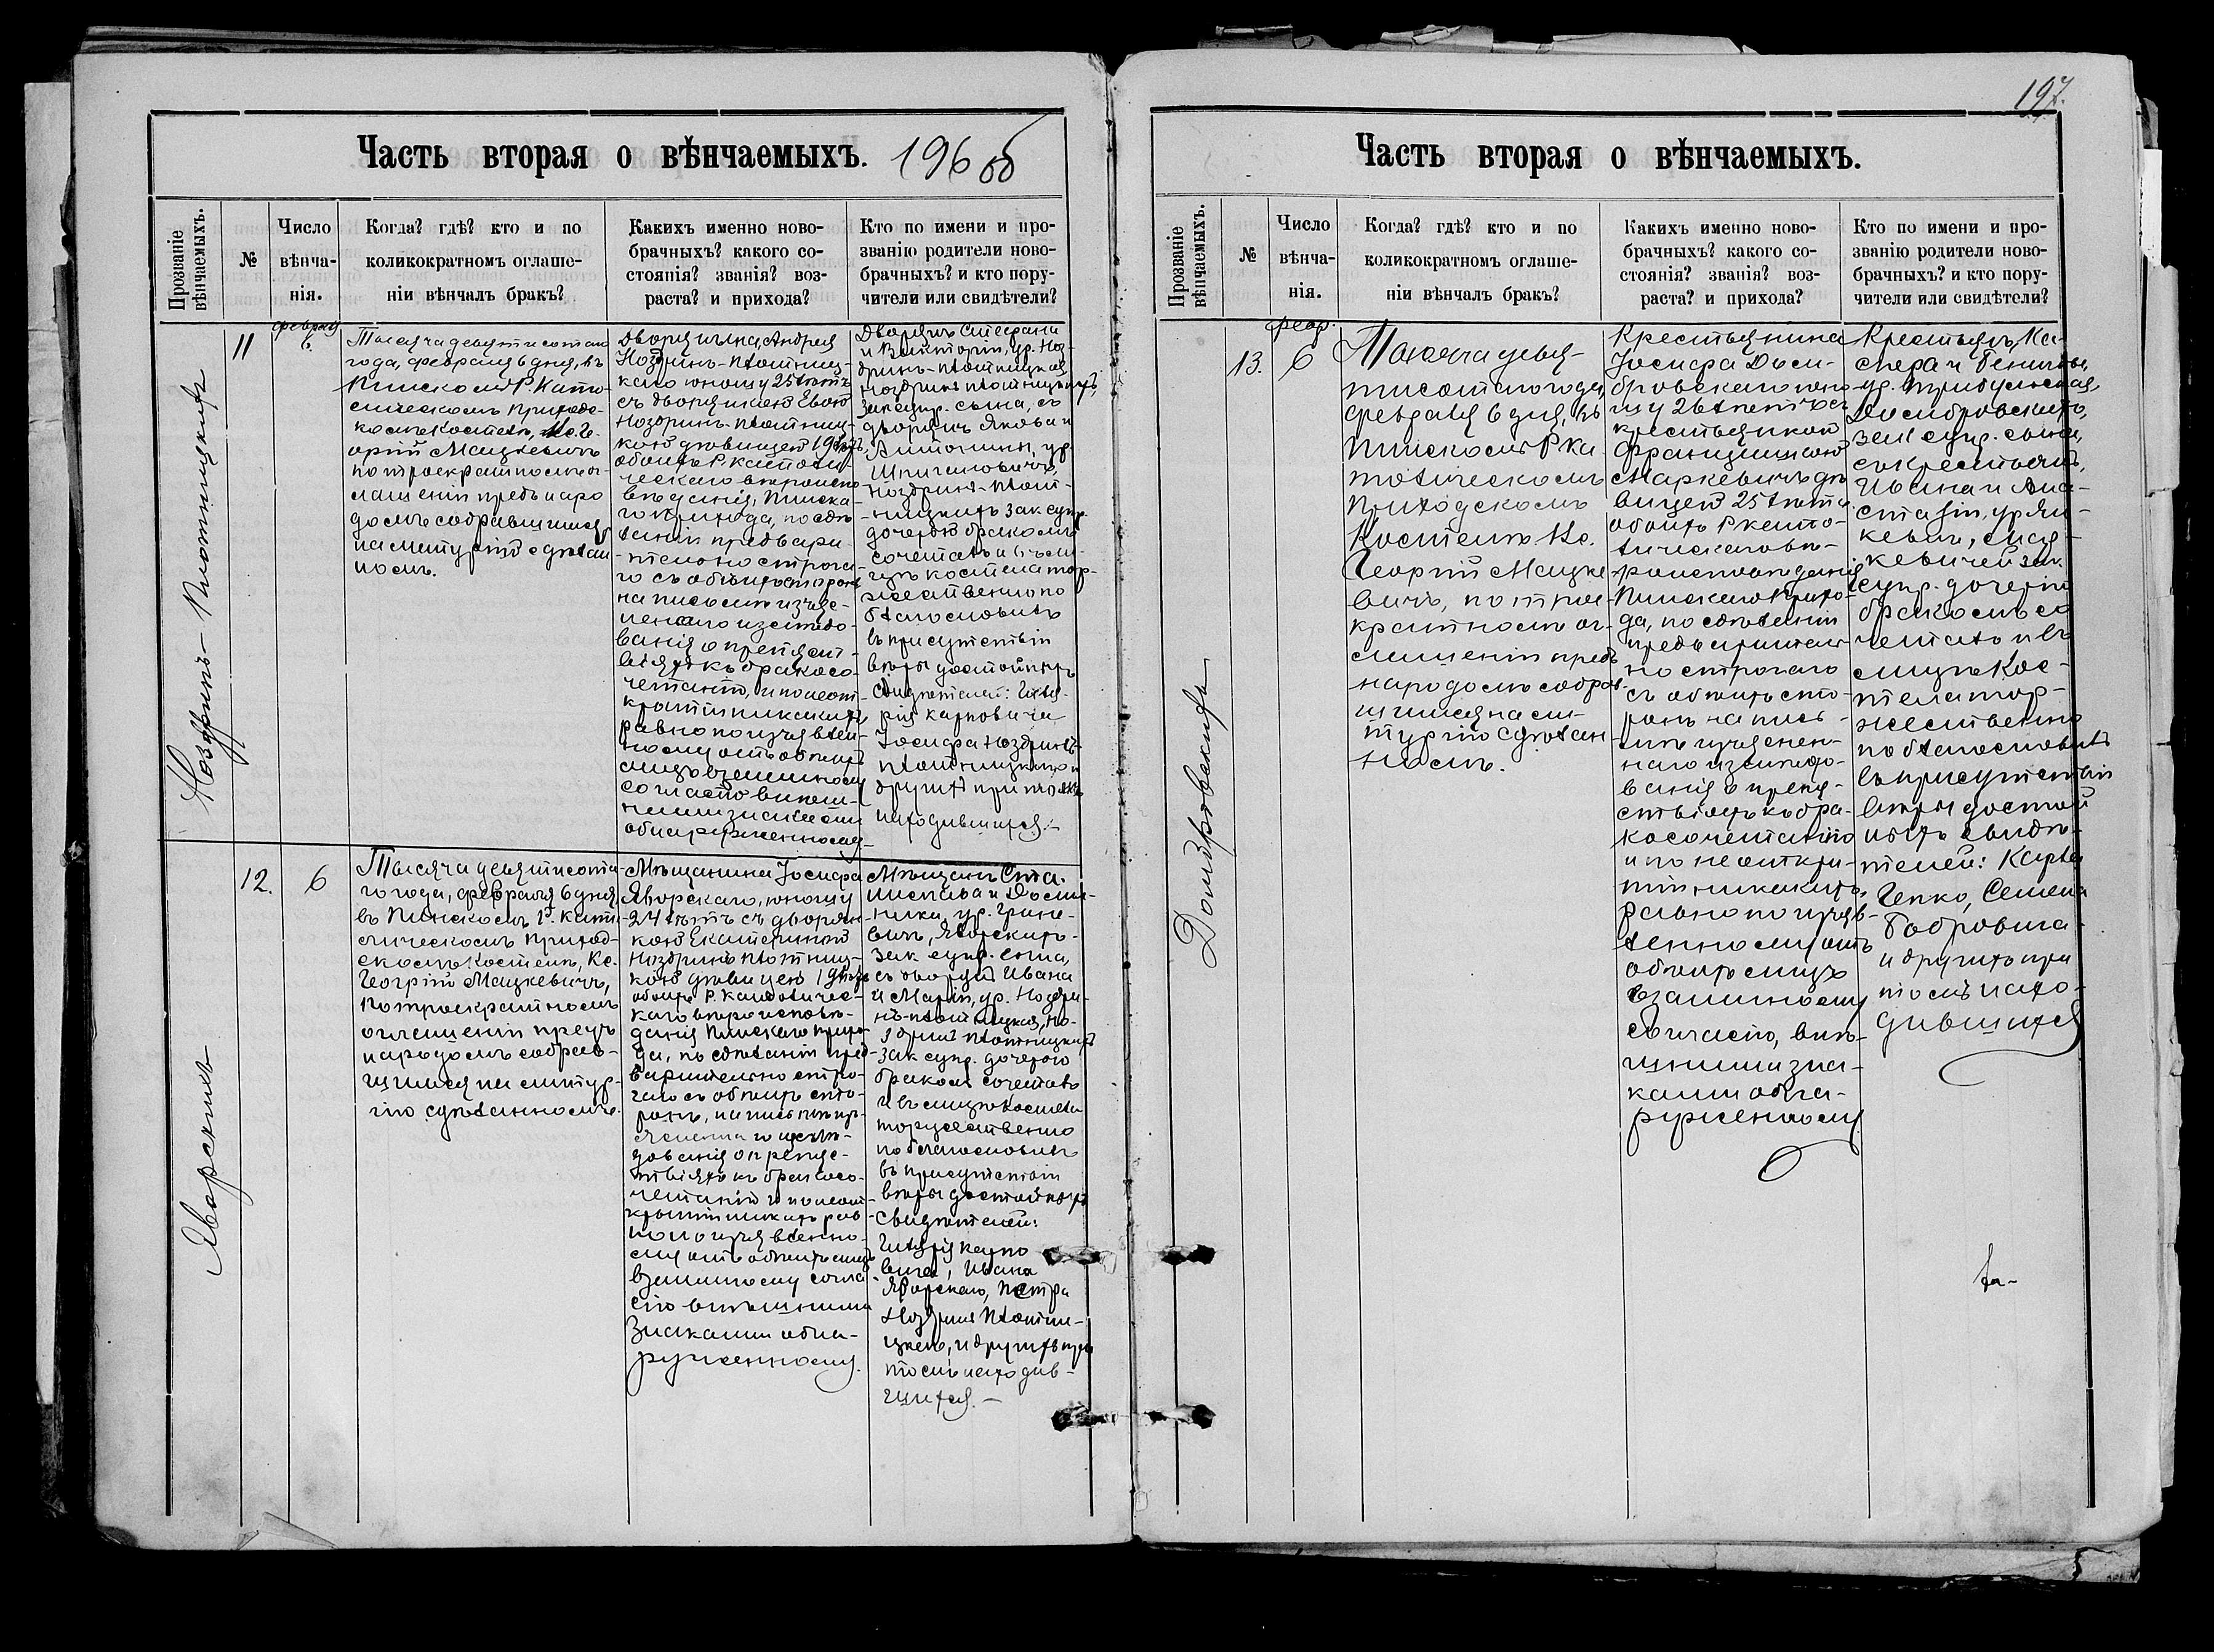 Часть вторая о вѣнчаемыхъ. 196 об
Прозваніе вѣнчаемыхъ.
№
Число вѣнча-нія.
Когда? гдѣ? кто и по
коликократномъ оглаше-
ніи вѣнчалъ бракъ?
Какихъ именно ново-
брачныхъ? какого со-
стоянія? званія? воз-
раста? и прихода?
Кто по имени и про-
званію родители ново-
брачныхъ? и кто пору-
чители или свидѣтели?
Ноздринъ-Плотницкихъ
11
февраля
6.
Тысяча девятисотаго
года, февраля 6 дня, въ
Пинскомъ Р. Като-
лическомъ приходс-
комъ костелѣ, Кс. Ге-
оргій Мацкевичъ
по троекратномъ ог-
лашеніи предъ наро
домъ собравшимся
на литургію сдѣлан
номъ.
Дворянина Андрея
Ноздринъ-Плотниц-
каго юношу 25 лѣтъ
съ дворянкою Евою
Ноздринъ-Плотниц-
кою дѣвицею 19 лѣтъ,
обоихъ Р. Католи-
ческаго вѣроиспо-
вѣданія, Пинска-
го прихода, по сдѣ
ланіи предвари-
тельно строга-
го съ обѣихъ сторонъ
на письмѣ изъяс-
неннаго изслѣдо-
ванія о препятст-
віяхъ къ бракосо-
четанію, и по неот-
крытіи никакихъ,
равно по изъявлен-
ному отъ обѣихъ
лицъ взаимному
согласію внѣш-
ними знаками
обнаруженному.
Дворянъ Стефана
и Викторіи, ур. Ноз-
дринъ-Плотницкой
Ноздринъ Плотницкихъ
зак. супр. сына, съ
дворянъ Якова и
Антонины, ур.
Ноздринъ-Плот-
ницкихъ зак супр.
дочерью бракомъ
сочеталъ и въ ли-
цѣ костела тор-
жественно по
благословилъ
въ присутствіи
вѣры достойныхъ
свидѣтелей: Иля-
рія Карповича
Іосифа Ноздринъ-
Плотницкаго и
другихъ при томъ
находившихся.
Яворскихъ
12.
6
Тысяча девятисота-
го года, февраля 6 дня,
въ Пинскомъ Р. Като-
лическомъ приход-
скомъ костелѣ, Кс.
Георгій Мацкевичъ,
по троекратномъ
оглашеніи предъ
народомъ собрав-
шимся на литур-
гію сдѣланномъ.
Мѣщанина Іосифа
Яворскаго, юношу
24 лѣтъ съ дворян-
кою Екатериною
Ноздринъ Плотниц-
кою дѣвицею 19 лѣтъ
обоихъ Р. Католичес-
каго вѣроисповѣ-
данія Пинскаго прихо-
да, по сдѣланіи пред-
варительно стро-
гаго съ обѣихъ сто-
ронъ, на письмѣ изъ-
ясненнаго изслѣ-
дованія о препят-
ствіяхъ къ бракосо-
четанію и по неот-
крытіи никакихъ рав-
но по изъявленно-
му отъ обѣихъ лицъ
взаимному согла-
сію внѣшними
знаками обна-
руженному.
Мѣщанъ Ста-
нислава и Доми-
ники, ур. Грине-
вичъ, Яворскихъ
зак. супр. сына,
съ дворянъ Ивана
и Маріи, ур. Ноздри-
нъ-Плотницкая, Но-
здринъ Плотницкихъ
зак супр. дочерью
бракомъ сочеталъ
и въ лицѣ костела
торжественно
поблагословилъ
въ присутствіи
вѣры достойныхъ
свидѣтелей:
Илярія Карпо
вича, Ивана
Яворскаго, Петра
Ноздринъ Плотни-
цкаго, и другихъ при
томъ находив-
шихся.
197.
Часть вторая о вѣнчаемыхъ.
Прозваніе вѣнчаемыхъ.
№
Число вѣнча-нія.
Когда? гдѣ? кто и по
коликократномъ оглаше-
ніи вѣнчалъ бракъ?
Какихъ именно ново-
брачныхъ? какого со-
стоянія? званія? воз-
раста? и прихода?
Кто по имени и про-
званію родители ново-
брачныхъ? и кто пору-
чители или свидѣтели?
Домбровскихъ
13.
февр.
6
Тысяча девя-
тисотаго года,
февраля 6 дня, въ
Пинскомъ Р Ка-
толическомъ
Приходскомъ
Костелѣ Кс.
Георгій Мацке
вичъ, по трое-
кратномъ ог-
лашеніи предъ
народомъ собрав-
шимся на ли-
тургію сдѣлан-
номъ.
Крестьянина
Іосифа Дом-
бровскаго юно-
шу 26 лѣтъ съ
крестьянкой
Францишкою
Маркевичъ дѣ-
вицей 25 лѣтъ
обоихъ Р Като-
лическаго вѣ-
роисповѣданія
Пинскаго прихо-
да, по сдѣланіи
предварительн-
но строгаго
съ обѣихъ сто-
ронъ на пись-
мѣ изъяснен-
наго изслѣдо-
ванія о препят-
ствіяхъ къ бра-
косочетанію
и по неоткры-
тіи никакихъ,
равно по изъяв-
ленному отъ
обѣихъ лицъ
взаимному
согласію, внѣ-
шними зна-
ками обна-
руженному
Крестьянъ, Ка-
спера и
Домбровскихъ,
зак супр. сына,
съ крестьянъ,
Ивана и Ана-
стазіи, ур.
зак
супр. дочерью
бракомъ со
четалъ и въ
лицѣ Кос-
тела тор-
жественно
поблагословилъ
въ присутствіи
вѣры достой
ныхъ свидѣ-
телей: Карла
Гепко, Семена
Бобровича
и другихъ при
томъ нахо-
дившихся